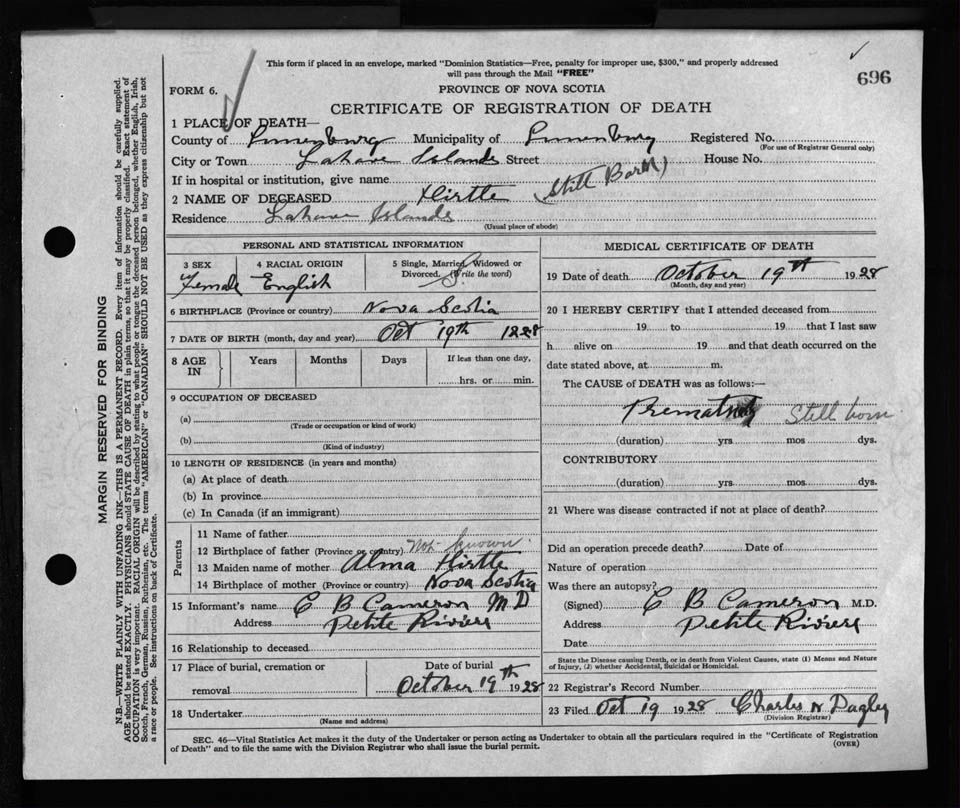 This form if placed in an envelope, marked "Dominion Statistics—Free, penalty for improper use, $300," and properly addressed
will pass through the Mail "FREE"
696
FORM 6.
PROVINCE OF NOVA SCOTIA
CERTIFICATE OF REGISTRATION OF DEATH
1 PLACE OF DEATH—
County of Lunenburg Municipality of Lunenburg Registered No.
(For use of Registrar General only)
City or Town Lahave Islands Street House No.
If in hospital or institution, give name
2 NAME OF DECEASED Hirtle (Still Born)
Residence Lahave Islands
(Usual place of abode)
PERSONAL AND STATISTICAL INFORMATION
3 SEX 4 RACIAL ORIGIN 5 Single, Married, Widowed or
Divorced. (Write the word)
Female English S
6 BIRTHPLACE (Province or country) Nova Scotia
7 DATE OF BIRTH (month, day and year) Oct 19th 1228
8 AGE IN Years Months Days If less than one day,
hrs. or min.
9 OCCUPATION OF DECEASED
(a)
(Trade or occupation or kind of work)
(b)
(Kind of industry)
10 LENGTH OF RESIDENCE (in years and months)
(a) At place of death
(b) In province
(c) In Canada (if an immigrant)
Parents
11 Name of father
12 Birthplace of father (Province or country) Not known
13 Maiden name of mother Alma Hirtle
14 Birthplace of mother (Province or country) Nova Scotia
15 Informant's name C B Cameron M D
Address Petite Riviere
16 Relationship to deceased
17 Place of burial, cremation or
removal
Date of burial
October 19th 1928
18 Undertaker
(Name and address)
MEDICAL CERTIFICATE OF DEATH
19 Date of death October 19th 1928
(Month, day and year)
20 I HEREBY CERTIFY that I attended deceased from
19 to 19 that I last saw
h alive on 19 and that death occurred on the
date stated above, at m.
The CAUSE of DEATH was as follows:—
Prematurity Still born
(duration) yrs mos dys.
CONTRIBUTORY
(duration) yrs mos dys.
21 Where was disease contracted if not at place of death?
Did an operation precede death? Date of
Nature of operation
Was there an autopsy?
(Signed) C B Cameron M.D.
Address Petite Riviere
Date
State the Disease causing Death, or in death from Violent Causes, state (1) Means and Nature
of Injury, (2) whether Accidental, Suicidal or Homicidal.
22 Registrar's Record Number
23 Filed Oct 19 1928 Charles N Dagley
(Division Registrar)
SEC. 46—Vital Statistics Act makes it the duty of the Undertaker or person acting as Undertaker to obtain all the particulars required in the "Certificate of Registration
of Death" and to file the same with the Division Registrar who shall issue the burial permit.
(OVER)
MARGIN RESERVED FOR BINDING
N.B.—WRITE PLAINLY WITH UNFADING INK—THIS IS A PERMANENT RECORD. Every item of information should be carefully supplied.
AGE should be stated EXACTLY. PHYSICIANS should STATE CAUSE OF DEATH in plain terms, so that it may be properly classified. Exact statement of
OCCUPATION is very important. RACIAL ORIGIN will be described by stating to what people or tongue the deceased person belonged, whether English, Irish,
Scotch, French, German, Russian, Ruthenian, etc. The terms "AMERICAN" or "CANADIAN" SHOULD NOT BE USED as they express citizenship but not
a race or people. See instructions on back of Certificate.